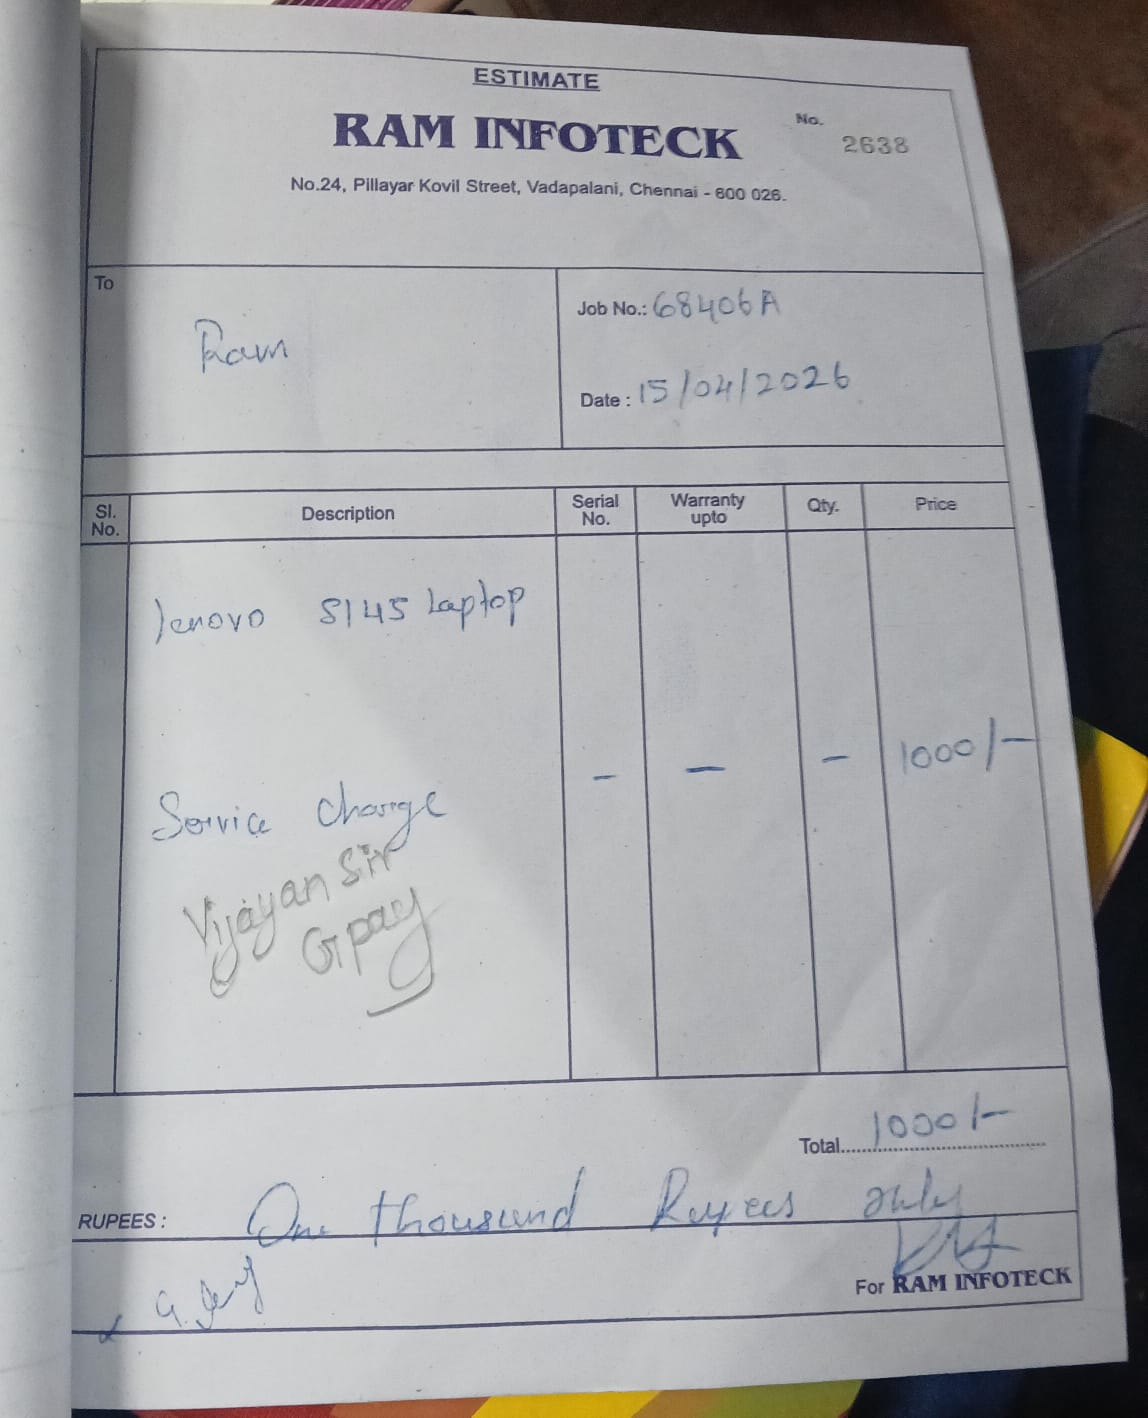 ESTIMATE
RAM INFOTECK
No. 2638
No.24, Pillayar Kovil Street, Vadapalani, Chennai - 600 026.
To
Ram
Job No.: 68406A
Date : 15/04/2026
Sl. No. Description Serial No. Warranty upto Qty. Price
lenovo S145 Laptop
Service charge - - - 1000/-
Vijayan Sir
Gpay
Total 1000/-
RUPEES : One thousand Rupees only
For RAM INFOTECK